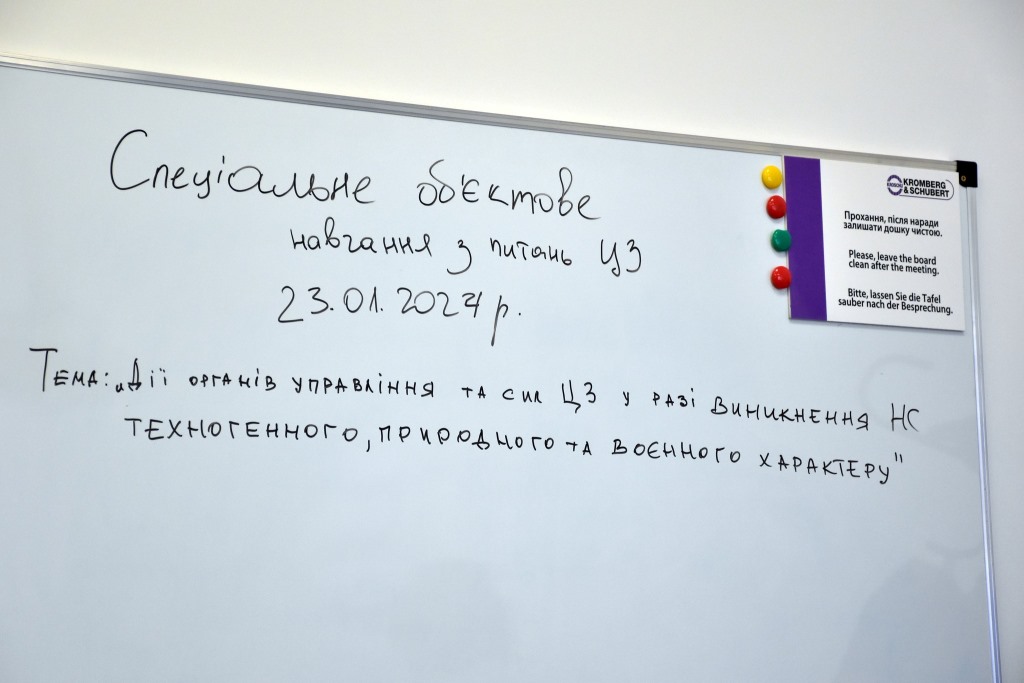 Спеціальне об'єктове
навчання з питань ЦЗ
23.01.2024 р.
Тема: „Дії органів управління та сил ЦЗ у разі виникнення НС
техногенного, природного та воєнного характеру"
KROMBERG
& SCHUBERT
Прохання, після наради
залишати дошку чистою.
Please, leave the board
clean after the meeting.
Bitte, lassen Sie die Tafel
sauber nach der Besprechung.